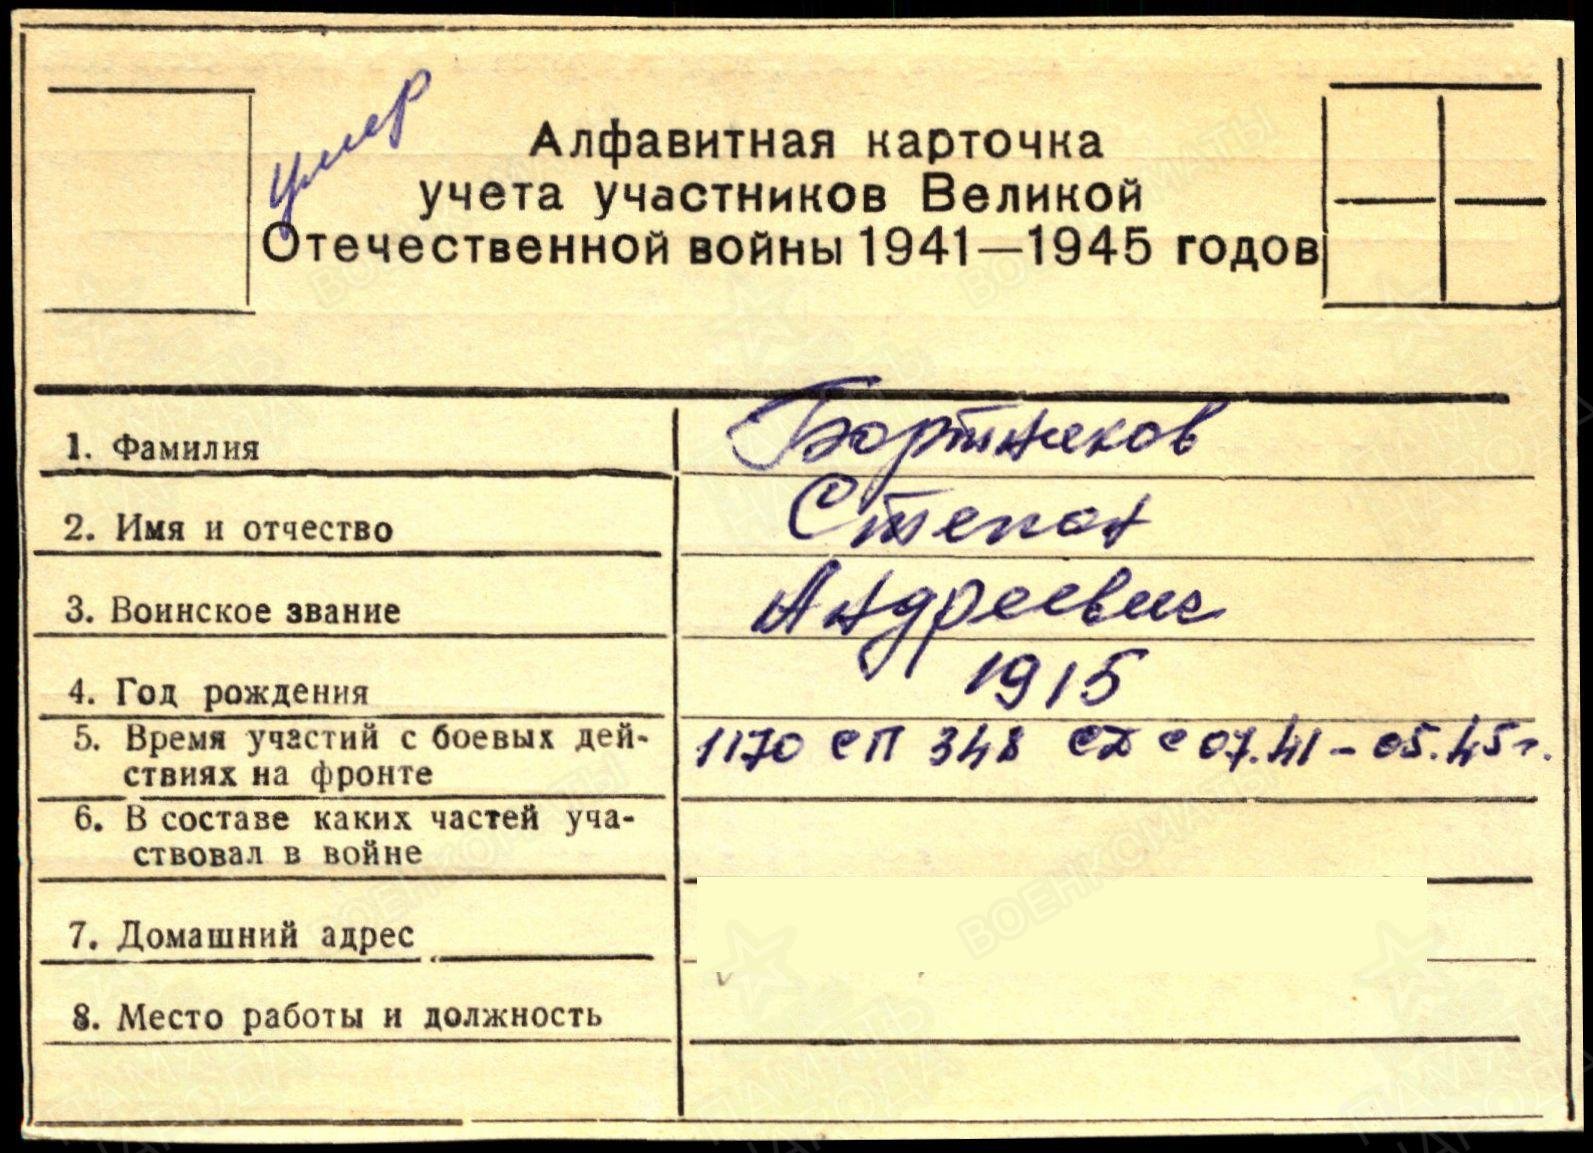 умер
Алфавитная карточка
учета участников Великой
Отечественной войны 1941—1945 годов
1. Фамилия Бортников
2. Имя и отчество Степан
3. Воинское звание Андреевич
4. Год рождения 1915
5. Время участий с боевых дей-
ствиях на фронте 1170 СП 348 СД с 07.41 – 05.45 г.
6. В составе каких частей уча-
ствовал в войне
7. Домашний адрес
8. Место работы и должность
ПАМЯТЬ НАРОДА
ВОЕНКОМАТЫ